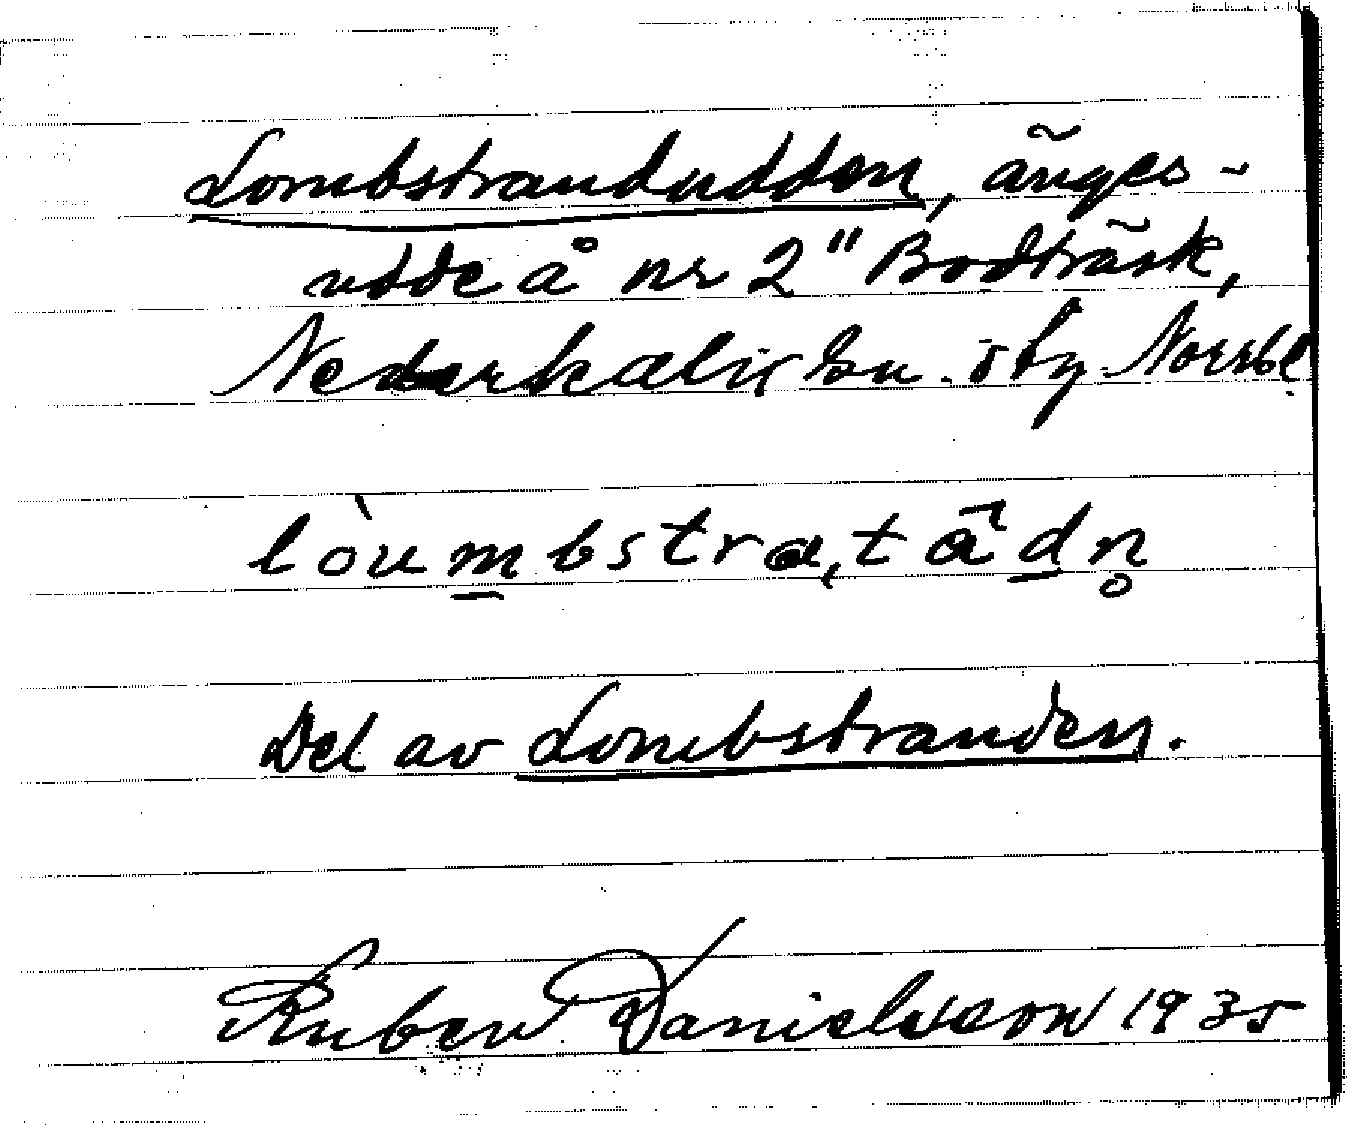 Lombstrandudden, änges-
udde å nr 2" Bodträsk,
Nederkalix sn. öby. Norrb.
lòumbstra,tādn̥
Del av Lombstranden.
Ruben Danielsson 1935